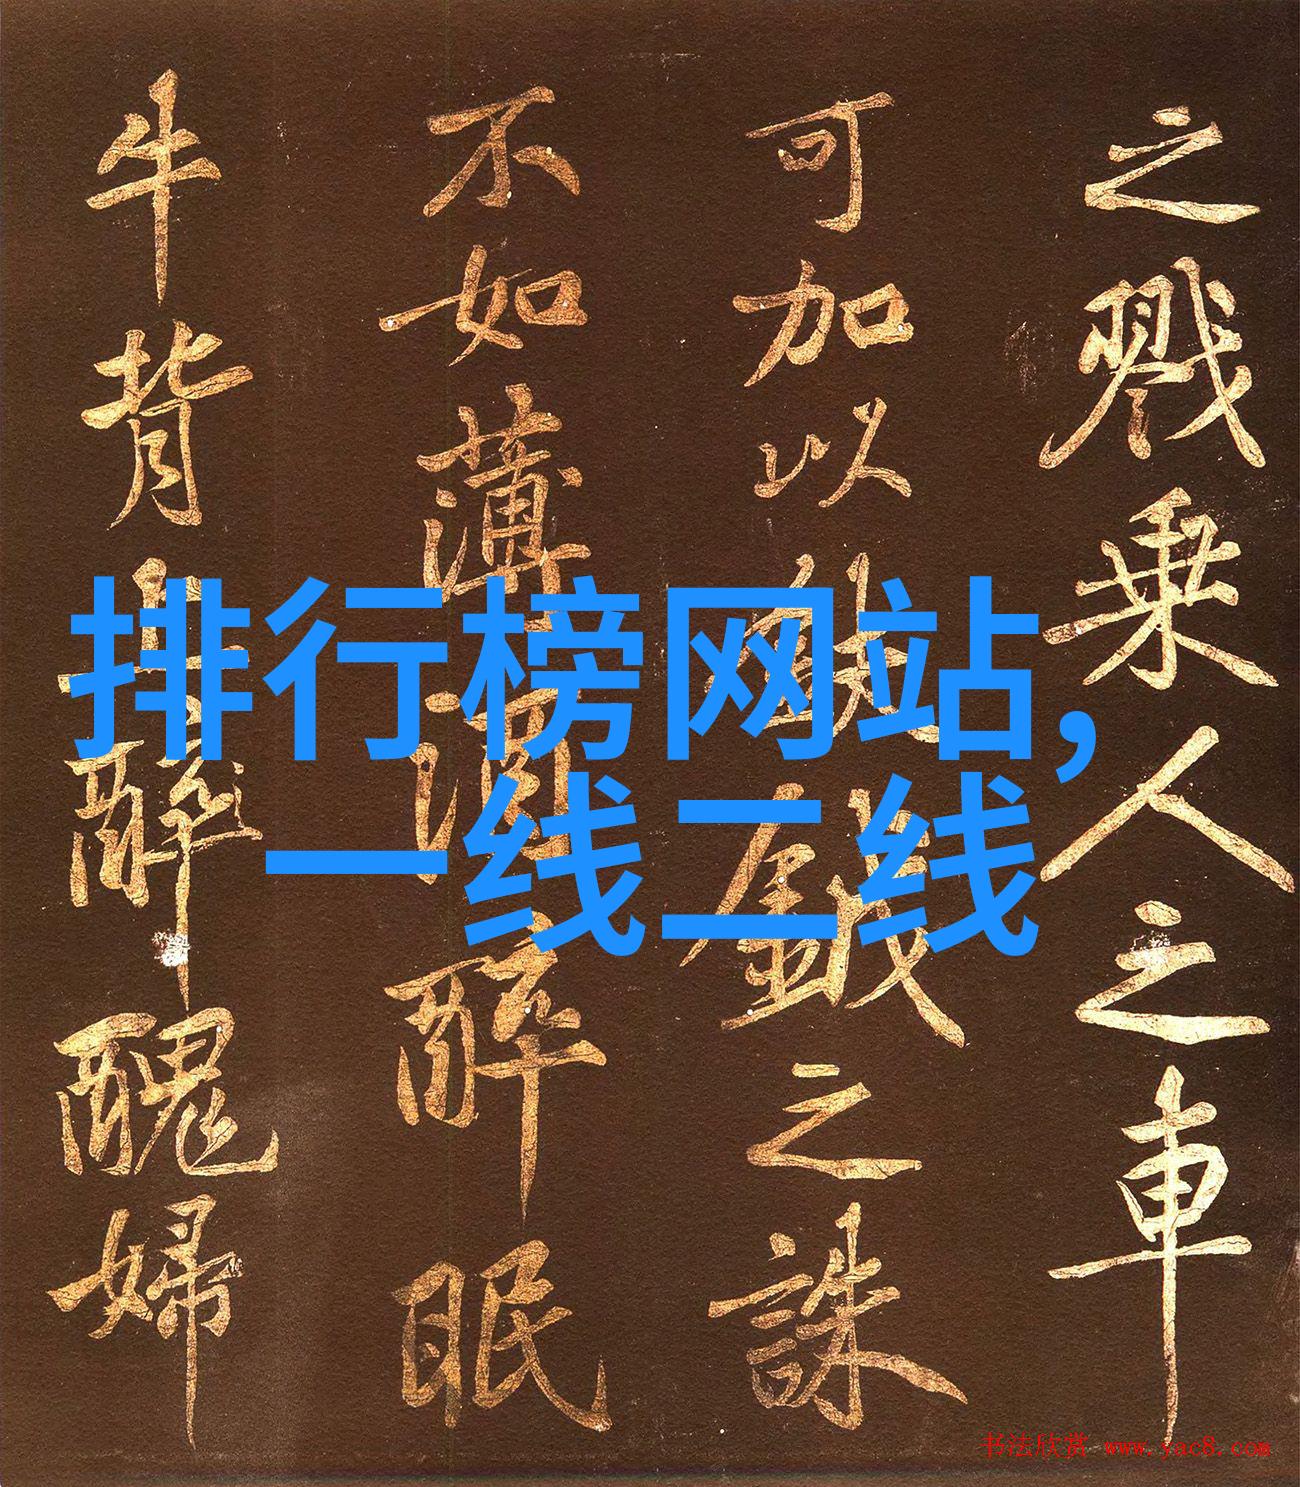 之戮乘人之車
可加以鈇鉞之誅
不如薄酒醉眠
牛背上醉醜婦
排行榜网站,
一线二线
书法欣赏 www.yac8.com